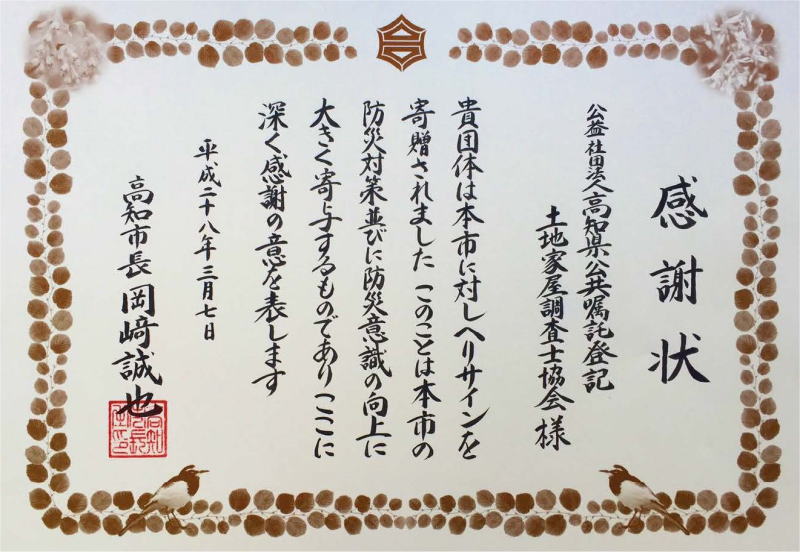 感謝状
公益社団法人高知県公共嘱託登記
土地家屋調査士協会様
貴団体は本市に対しヘリサインを
寄贈されました このことは本市の
防災対策並びに防災意識の向上に
大きく寄与するものであり ここに
深く感謝の意を表します
平成二十八年三月七日
高知市長 岡﨑誠也